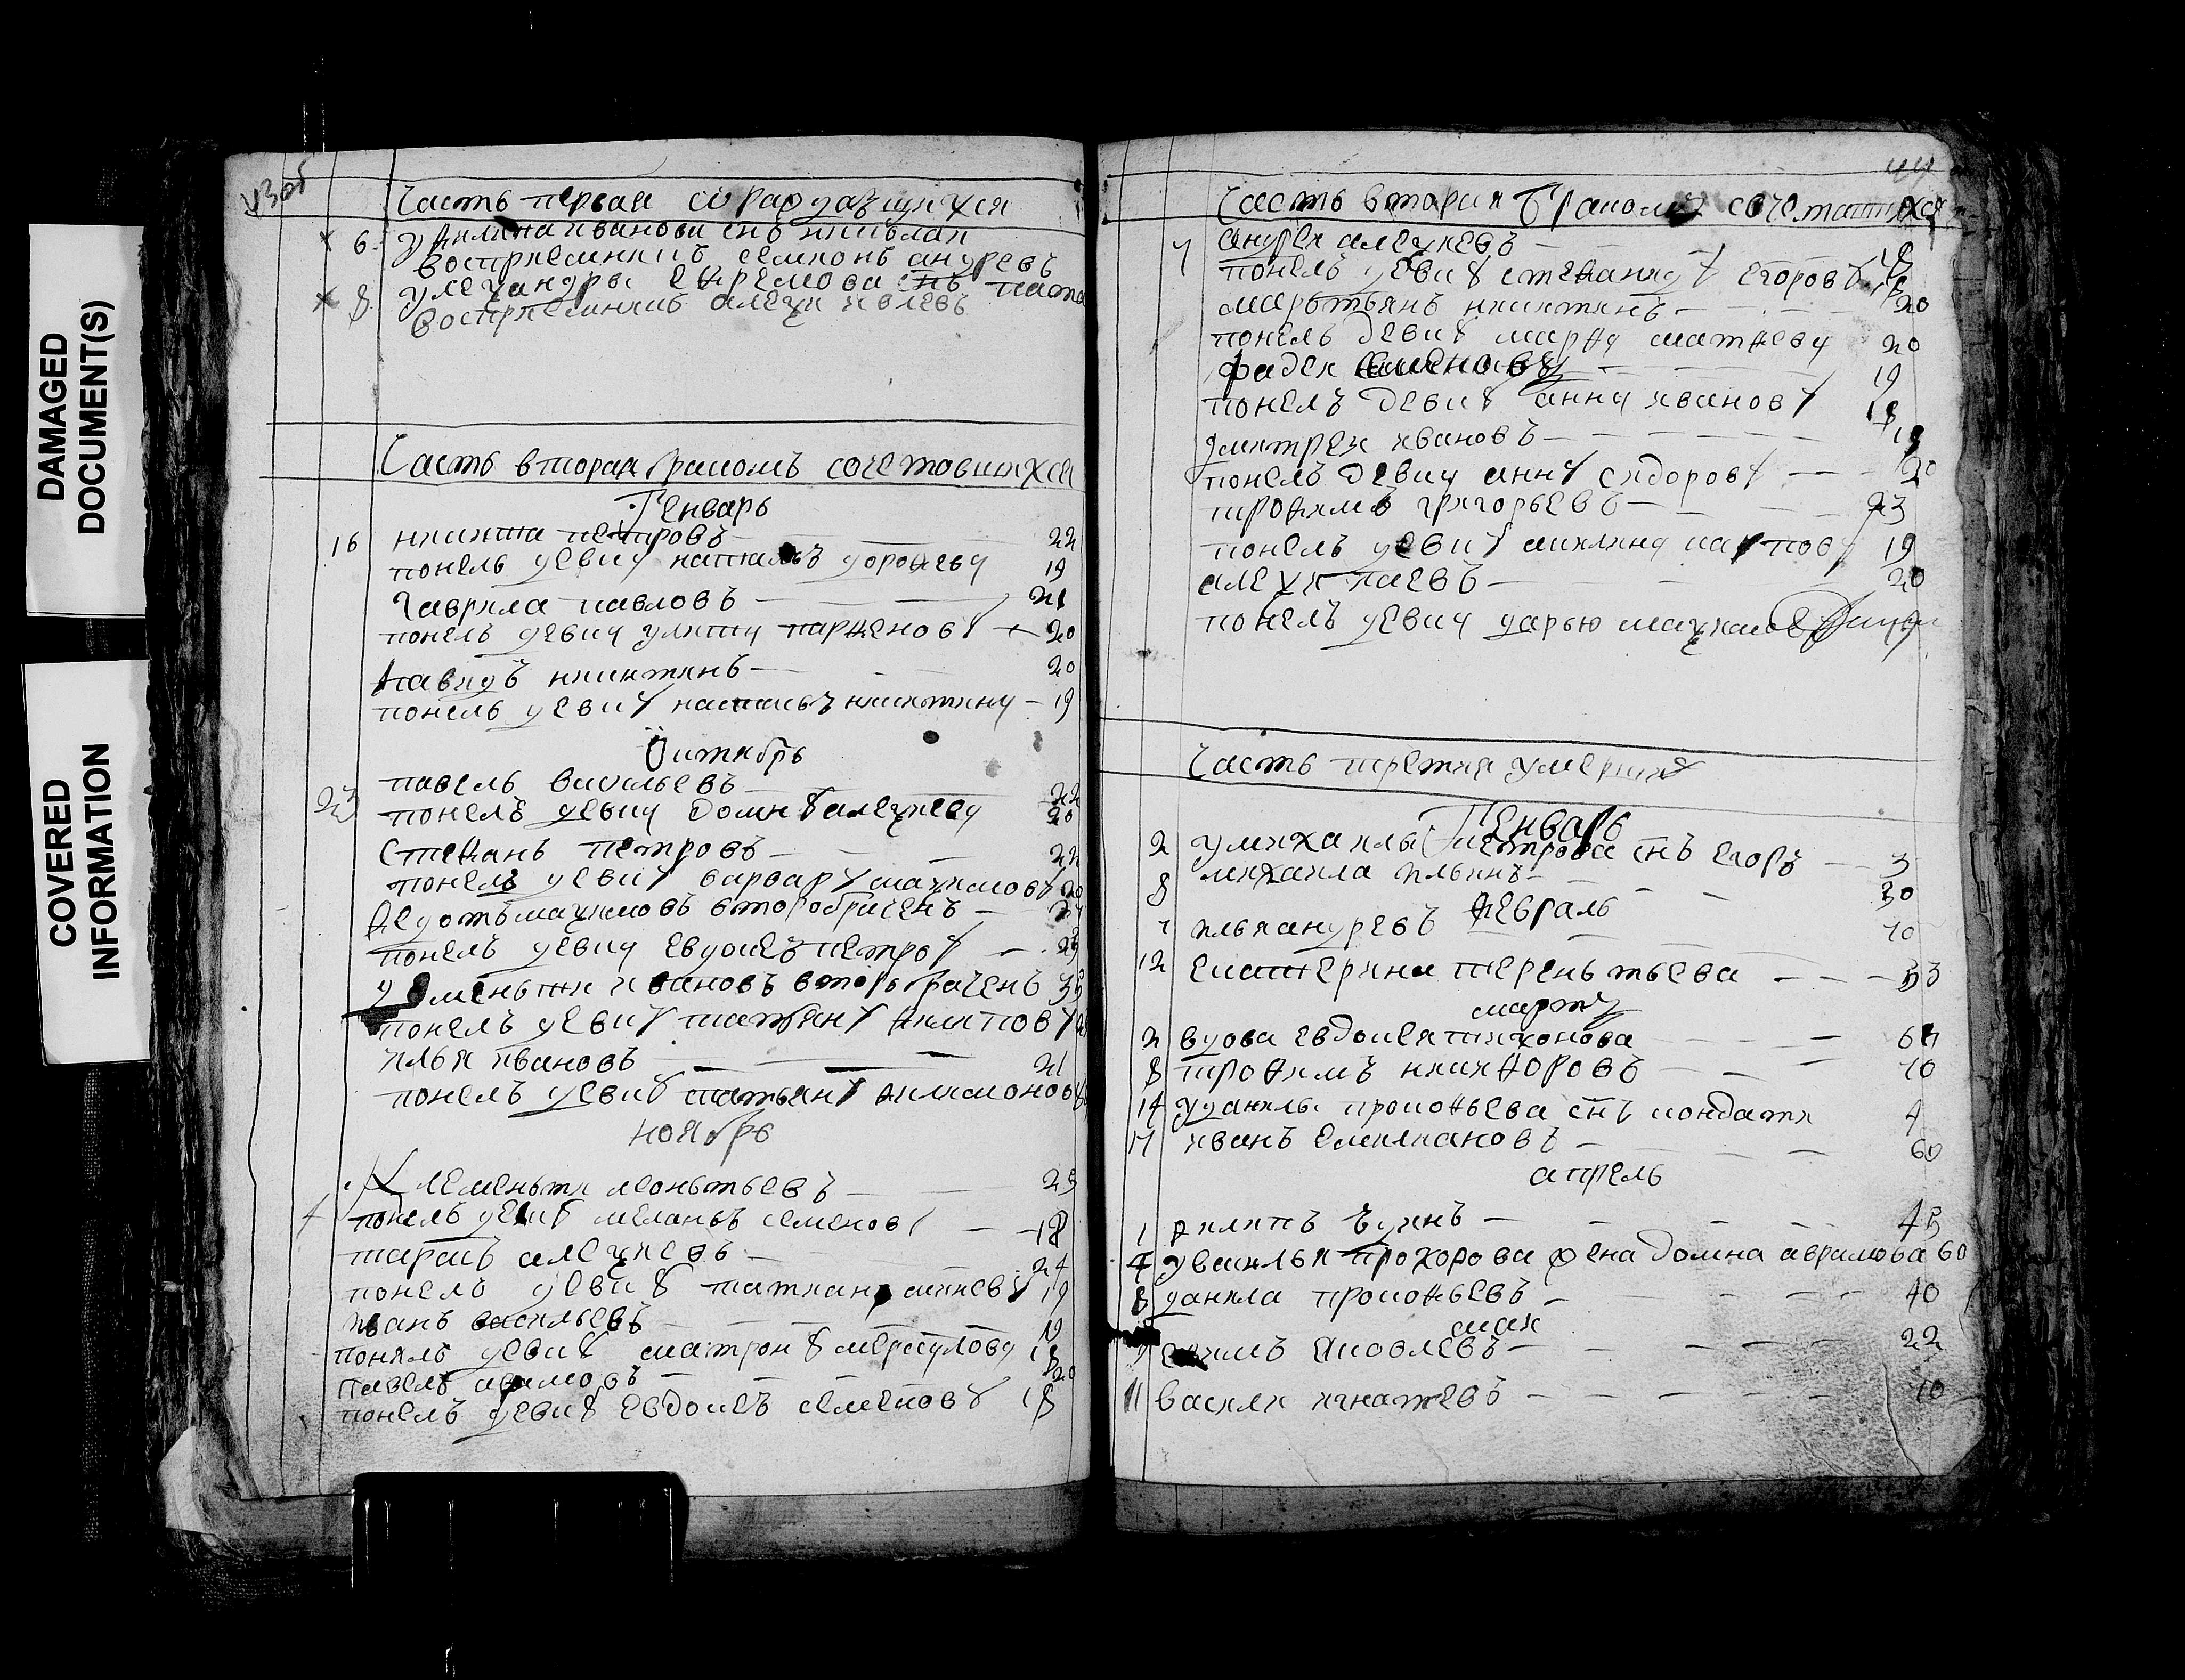 DAMAGED
DOCUMENT(S)
COVERED
INFORMATION
43об
Часть первая о раждающихся
6 у филипа иванова снъ николаи
восприемникъ семионъ андреевъ
8 у александры ефремова снъ
восприемникъ алексеи
Часть вторая браком сочетовшихся
Генварь
16 никита петровъ 22
понелъ девку наталью дорофеву 19
гаврила павловъ 21
понелъ девку улиту парфенову 20
давидъ никитинъ 20
понелъ девку настасью никитину 19
Октябрь
23 павелъ васильевъ 22
понелъ девку домну алексеву 20
степанъ петровъ 22
понелъ девку варвару максимову 20
федотъ максимовъ второбраченъ
понелъ девку евдокею петрову 23
дементеи ивановъ второбраченъ
понелъ девку татьяну филипову
илья ивановъ 21
понелъ девку татьяну филимонову
ноябрь
клементеи леонтьевъ 25
понелъ девку меланью семенову 18
тарасъ алексеевъ 24
понелъ девку татиану 19
иванъ васильевъ 19
понялъ девку матрону меркулову 18
павелъ 20
понелъ девку евдокею семенову 18
44
Часть вторая браком сочетавшихся
7 андреи алексеевъ
понелъ девку степаниду егорову 18
мартьянъ никитинъ 20
понелъ девку марфу матфеву 20
фадеи семеновъ 19
понелъ девку анну иванову 18
дмитреи ивановъ 19
понелъ девку анну сидорову 20
трофимъ григорьевъ 23
понелъ девку акилину карпову 19
алексеи 20
понелъ девку дарью максимову
Часть третия умерших
Генварь
2 у михаилы петрова снъ егоръ 3
8 михаила ильинъ 30
февраль
7 илья андреевъ 70
12 екатерина терентьева 33
мартъ
2 вдова евдокея тихонова
8 трофимъ никифоровъ 70
14 у данилы прокофьева снъ кондратеи 4
17 иванъ емилиановъ 60
апрель
1 филипъ 45
4 у василья прохорова жена домна аврамова 60
8 данила прокофьевъ 40
маи
ефимъ яковлевъ 22
11 василеи игнатевъ 70